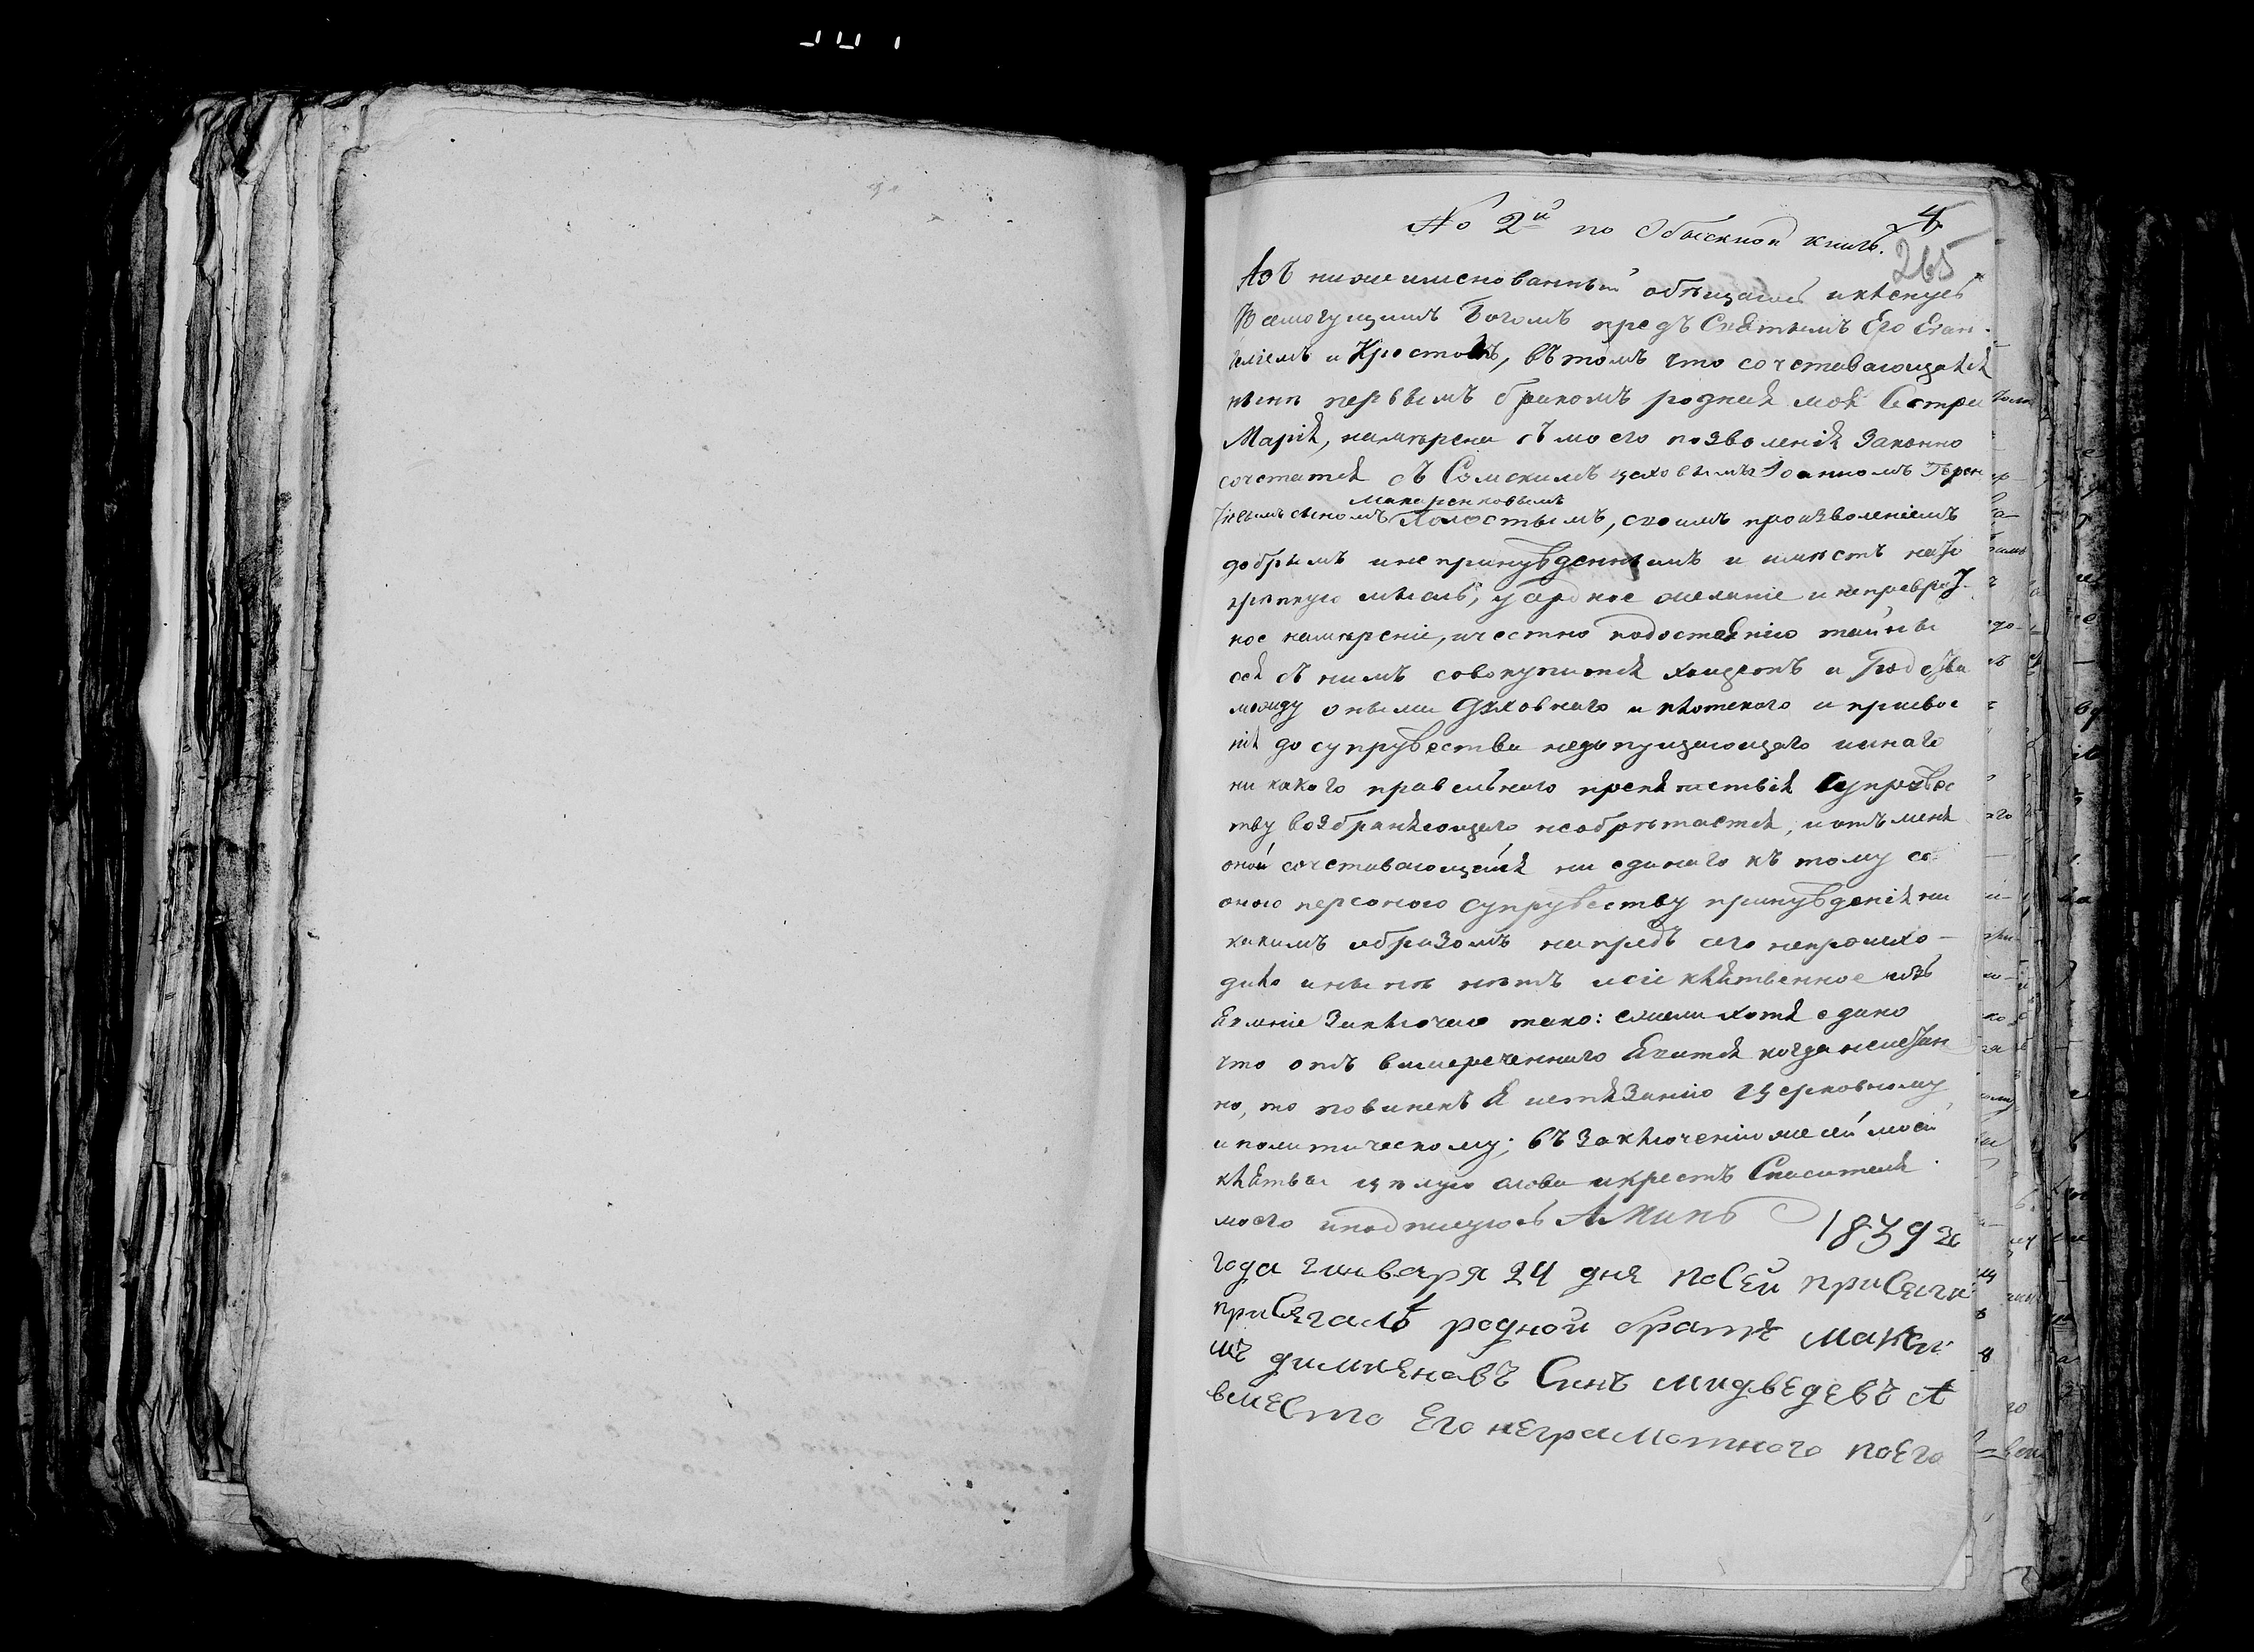 № 2й по Обыскной книгѣ.
4
265
Азъ нижеименованный обѣщаюсь и клянусь
Всемогущимъ Богомъ предъ Святымъ Его Еван-
геліемъ и Крестомъ, въ томъ что сочетавающаяся
нынѣ первымъ бракомъ родная моя Сестра
Марія, намѣрена съ моего позволенія законно
сочетатся съ Сумскимъ цеховымъ Іоанномъ Терен
тіевымъ сыномъ
Макаренковымъ
Толостымъ, своимъ произволеніемъ
добрымъ и непринужденнымъ и имѣетъ на то
крѣпкую мысль, усердное желаніе и непреврат-
ное намѣреніе, и честно по достоянію тайны
сея съ нимъ совокупится хощетъ и родства
между оными духовнаго и плотскаго и присвое
нія до супружества недопущающаго и инаго
никакого правильнаго препятствія Супружес
тву возбраняющаго необрѣтается, и отъ меня
оной сочетавающейся ни единаго къ тому со
оною персоною супружеству принужденія ни
какимъ образомъ напредъ сего непроисхо-
дило и нынѣ нѣтъ и сіе клятвенное изъ
явленіе заключаю тако: ежели хотя едино
что отъ вышереченнаго явится когда неистин
но, то повиненъ я истязанію церковному
и политическому; въ заключеніи же сей моей
клятвы цѣлую слова и крестъ Спасителя
моего и подпишуюсь Аминь 1839го
года генваря 24 дня посей присяги
присягалъ родной братъ Макси
мъ Сынъ мидведевъ А
вместо его неграмотного поего